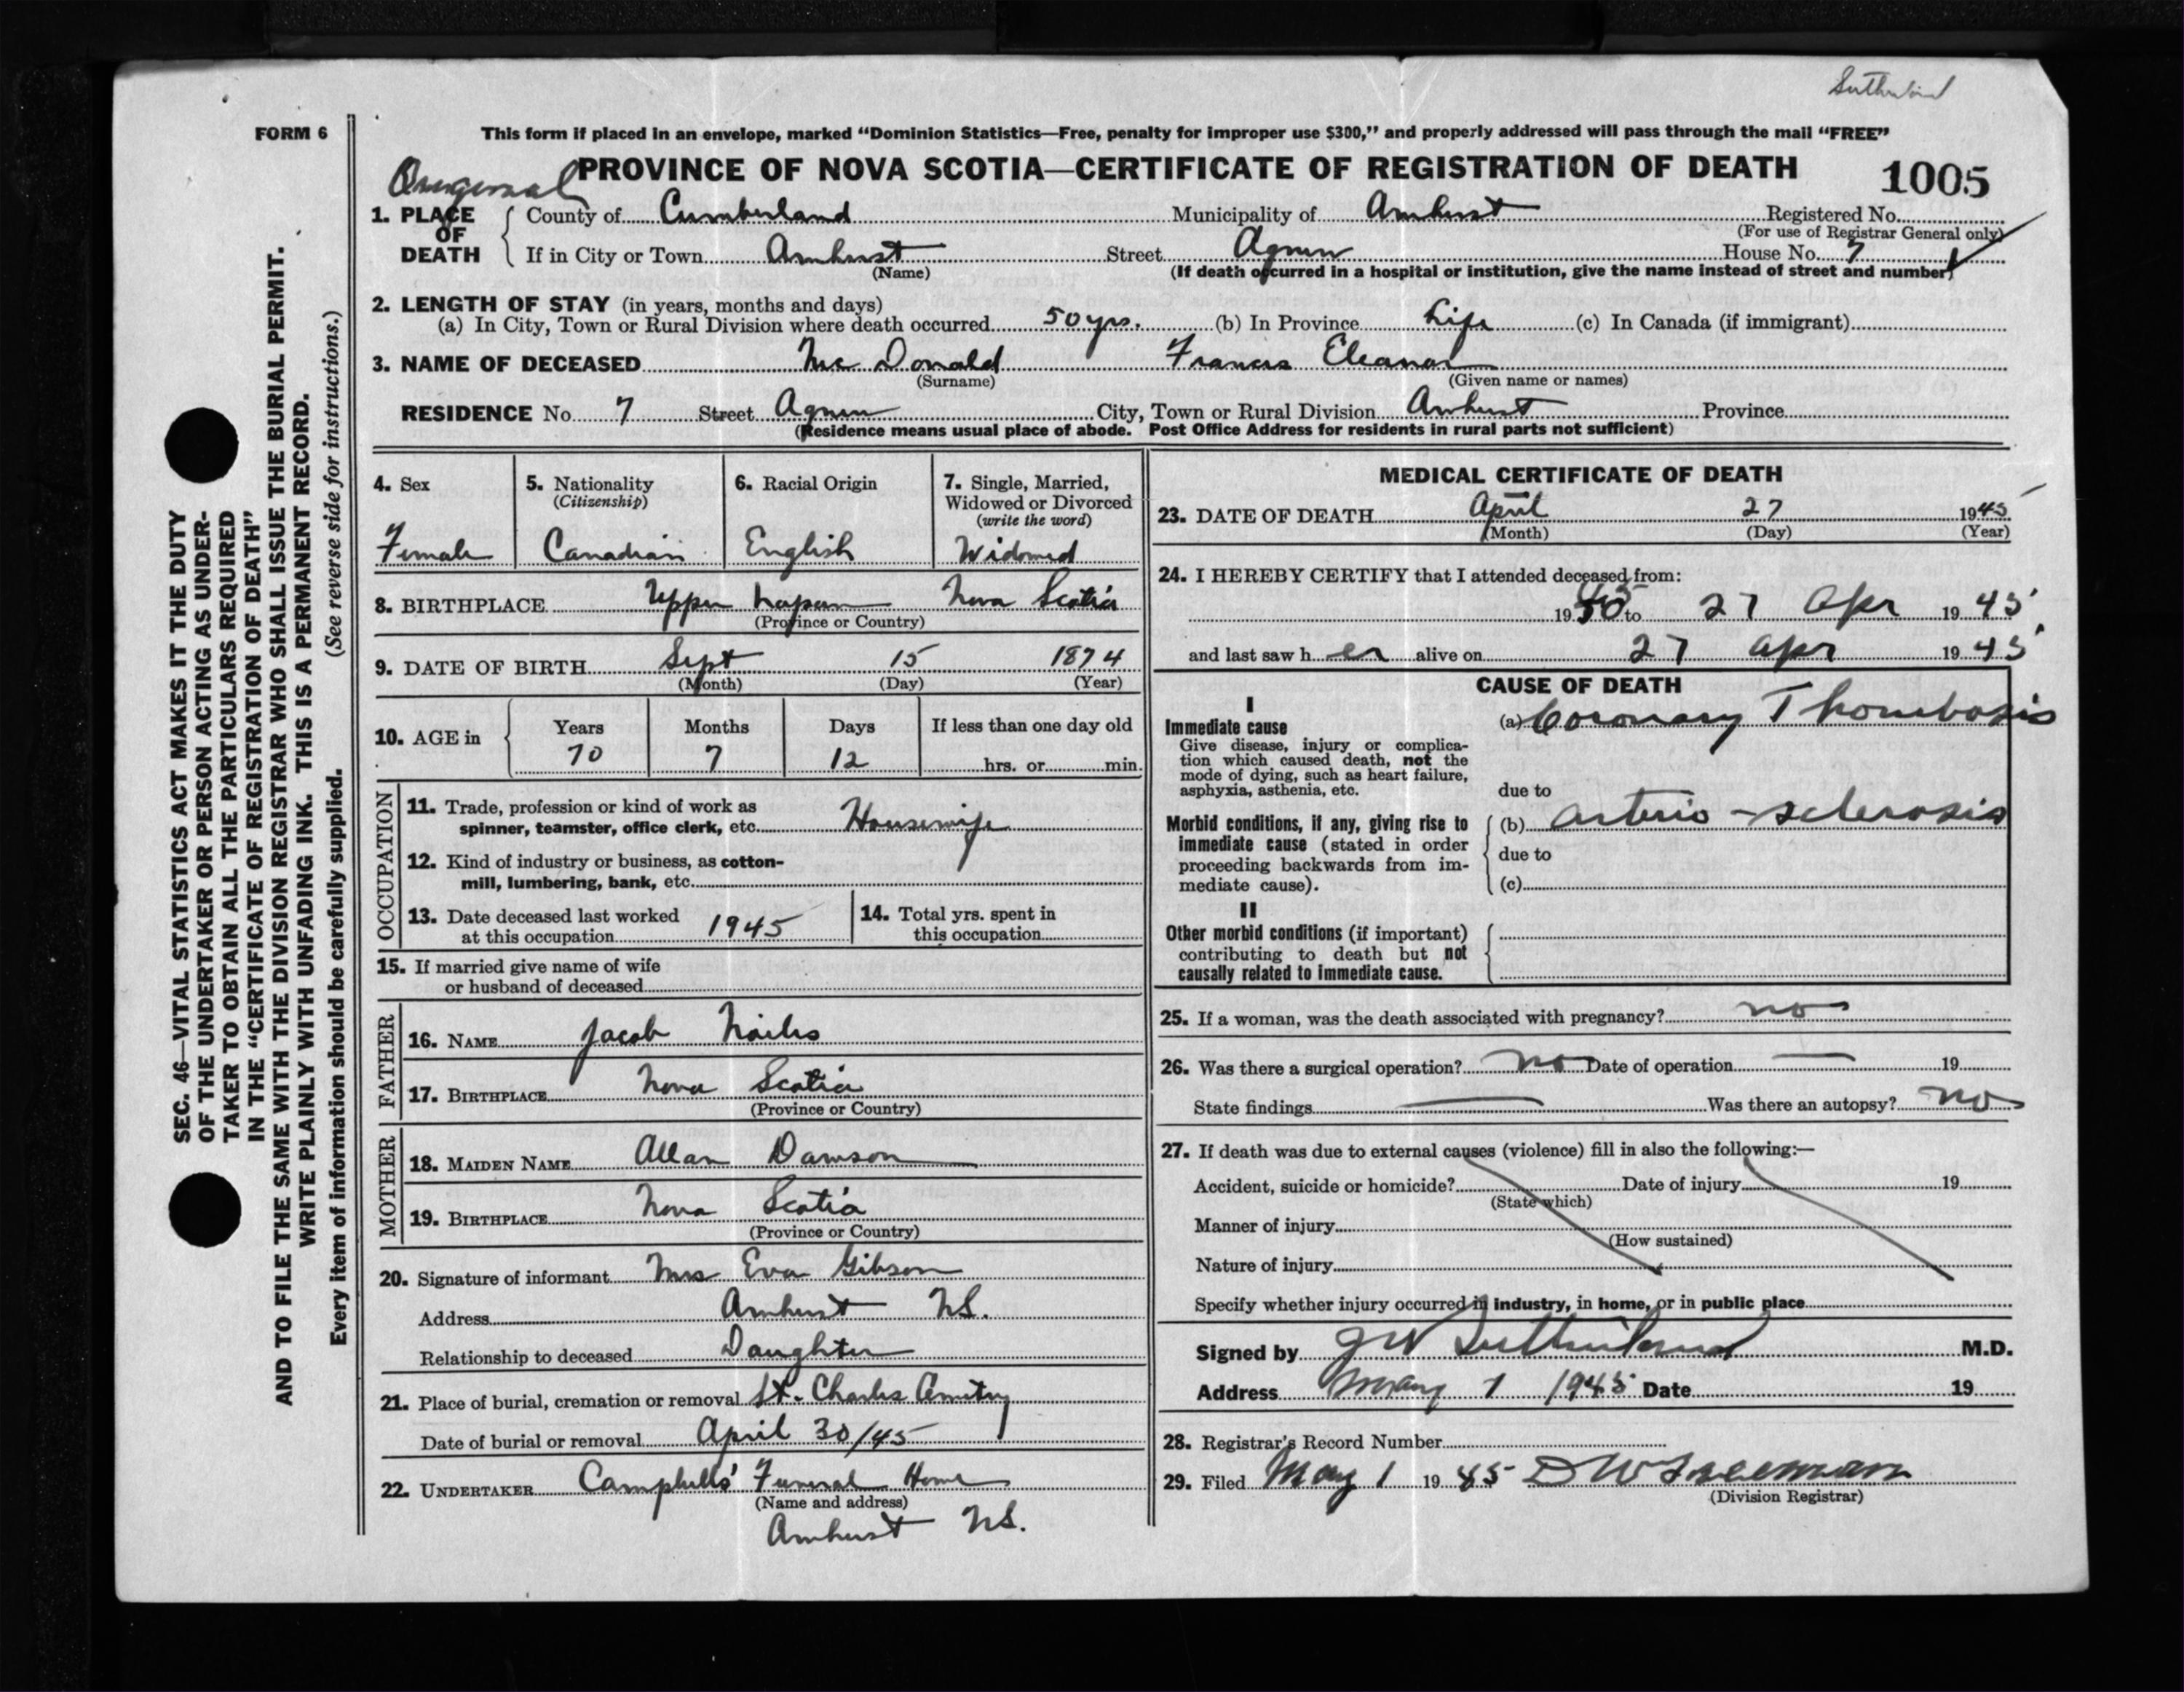 Sutherland
FORM 6
This form if placed in an envelope, marked “Dominion Statistics—Free, penalty for improper use $300,” and properly addressed will pass through the mail “FREE”
PROVINCE OF NOVA SCOTIA—CERTIFICATE OF REGISTRATION OF DEATH 1005
1. PLACE OF DEATH
County of Cumberland Municipality of Amherst Registered No.
(For use of Registrar General only)
If in City or Town Amherst Street Agnew House No. 7
(Name) (If death occurred in a hospital or institution, give the name instead of street and number)
2. LENGTH OF STAY (in years, months and days)
(a) In City, Town or Rural Division where death occurred 50 yrs. (b) In Province Life (c) In Canada (if immigrant)
3. NAME OF DECEASED Mc Donald Francis Eleanor
(Surname) (Given name or names)
RESIDENCE No 7 Street Agnew City, Town or Rural Division Amherst Province
(Residence means usual place of abode. Post Office Address for residents in rural parts not sufficient)
4. Sex
Female
5. Nationality
(Citizenship)
Canadian
6. Racial Origin
English
7. Single, Married,
Widowed or Divorced
(write the word)
Widowed
8. BIRTHPLACE Upper Napan Nova Scotia
(Province or Country)
9. DATE OF BIRTH Sept 15 1874
(Month) (Day) (Year)
10. AGE in
Years Months Days If less than one day old
70 7 12 hrs. or min.
OCCUPATION
11. Trade, profession or kind of work as
spinner, teamster, office clerk, etc. Housewife
12. Kind of industry or business, as cotton-
mill, lumbering, bank, etc.
13. Date deceased last worked
at this occupation 1945
14. Total yrs. spent in
this occupation
15. If married give name of wife
or husband of deceased
FATHER
16. NAME Jacob Niles
17. BIRTHPLACE Nova Scotia
(Province or Country)
MOTHER
18. MAIDEN NAME Allan Dawson
19. BIRTHPLACE Nova Scotia
(Province or Country)
20. Signature of informant Mrs Eva Gibson
Address Amherst N.S.
Relationship to deceased Daughter
21. Place of burial, cremation or removal St. Charles Cemetry
Date of burial or removal April 30/45
22. UNDERTAKER Campbells' Funeral Home
(Name and address)
Amherst N.S.
MEDICAL CERTIFICATE OF DEATH
23. DATE OF DEATH April 27 1945
(Month) (Day) (Year)
24. I HEREBY CERTIFY that I attended deceased from:
19 to 27 Apr 1945
and last saw her alive on 27 Apr 1945
CAUSE OF DEATH
I
Immediate cause
Give disease, injury or complica-
tion which caused death, not the
mode of dying, such as heart failure,
asphyxia, asthenia, etc.
(a) Coronary Thombosis
due to
Morbid conditions, if any, giving rise to
immediate cause (stated in order
proceeding backwards from im-
mediate cause).
(b) Arterio-sclerosis
due to
(c)
II
Other morbid conditions (if important)
contributing to death but not
causally related to immediate cause.
25. If a woman, was the death associated with pregnancy? no
26. Was there a surgical operation? no Date of operation — 19
State findings — Was there an autopsy? no
27. If death was due to external causes (violence) fill in also the following:—
Accident, suicide or homicide? Date of injury 19
(State which)
Manner of injury
(How sustained)
Nature of injury
Specify whether injury occurred in industry, in home, or in public place
Signed by J W Sutherland M.D.
Address May 1 1945 Date 19
28. Registrar's Record Number
29. Filed May 1 1945 D W Freeman
(Division Registrar)
SEC. 46—VITAL STATISTICS ACT MAKES IT THE DUTY
OF THE UNDERTAKER OR PERSON ACTING AS UNDER-
TAKER TO OBTAIN ALL THE PARTICULARS REQUIRED
IN THE “CERTIFICATE OF REGISTRATION OF DEATH”
AND TO FILE THE SAME WITH THE DIVISION REGISTRAR WHO SHALL ISSUE THE BURIAL PERMIT.
WRITE PLAINLY WITH UNFADING INK. THIS IS A PERMANENT RECORD.
Every item of information should be carefully supplied. (See reverse side for instructions.)